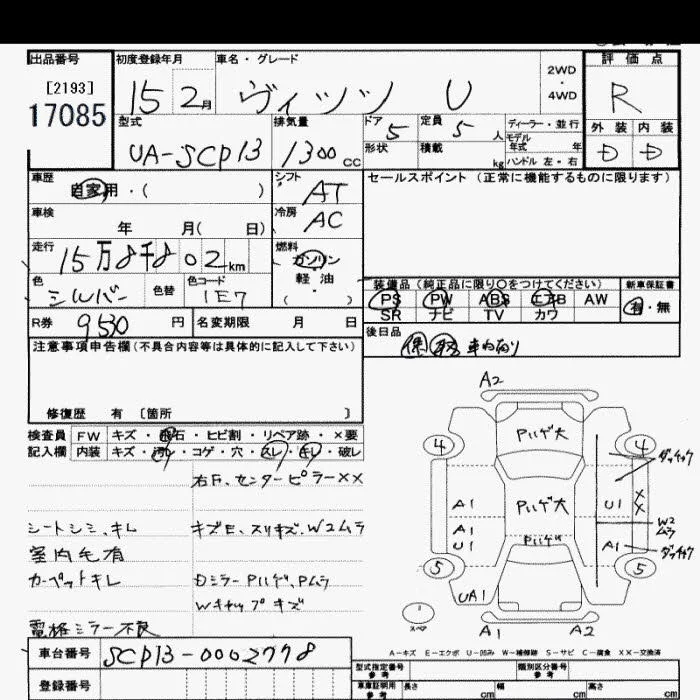 出品番号
[2193]
17085
初度登録年月
15 2月
車名・グレード
ヴィッツ U
2WD
・
4WD
評価点
R
外装 内装
D D
型式
UA-SCP13
排気量
1300 CC
ドア 5
定員 5 人
形状
積載 kg
ディーラー・並行
モデル
年式 年
ハンドル 左・右
車歴
自家用・( )
シフト
AT
セールスポイント (正常に機能するものに限ります)
車検
年 月( 日)
冷房
AC
走行
15万8千802km
燃料
ガソリン
軽油
・
( )
色
シルバー
色替
色コード
1E7
装備品(純正品に限り○をつけてください)
PS PW ABS エアB AW
SR ナビ TV カワ
新車保証書
有・無
R券 9530 円
名変期限 月 日
後日品
保 取 車内有り
注意事項申告欄(不具合内容等は具体的に記入して下さい)
修復歴 有 〔箇所 〕
検査員 FW キズ・飛石・ヒビ割・リペア跡・×要
記入欄 内装 キズ・汚れ・コゲ・穴・スレ・キレ・破レ
右F、センターピラーXX
シートシミ、キレ
キズE、スリキズ、W2ムラ
室内毛有
カーペットキレ
DミラーPハゲ、Pムラ
Wキャップキズ
電格ミラー不良
A2
Pハゲ大
4
4
ダッチャク
A1
Pハゲ大
U1
XX
A1
U1
W2
ムラ
Pハゲ
A1
ダッチャク
5
5
UA1
1
スペア
A1
A2
A-キズ E-エクボ U-凹み W-補修跡 S-サビ C-腐食 XX-交換済
車台番号
SCP13-0002778
登録番号
型式指定番号
参考
類別区分番号
参考
車庫証明用
参考
長さ cm
幅 cm
高さ cm